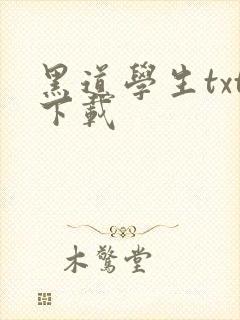 黑道學生txt
下載
木驚堂